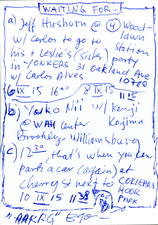 WAITING FOR..
a) Jeff Hirshorn @ 4 Wood-
w/ Carlos to go to lawn
his + Leslie's (sis's) Station
in YONKERS 31 Oakland Ave party
w/ Carlos Alves
IX 15 IX 15
b) Yoko Nii w/ Kenji
@ WAH Center Kojima
Brooklyn Williamsburg
c) 12 30, that's when you can
park a car (again) at
Cherry St next to CORLEARS
HOOK
PARK
10 IX 15 11